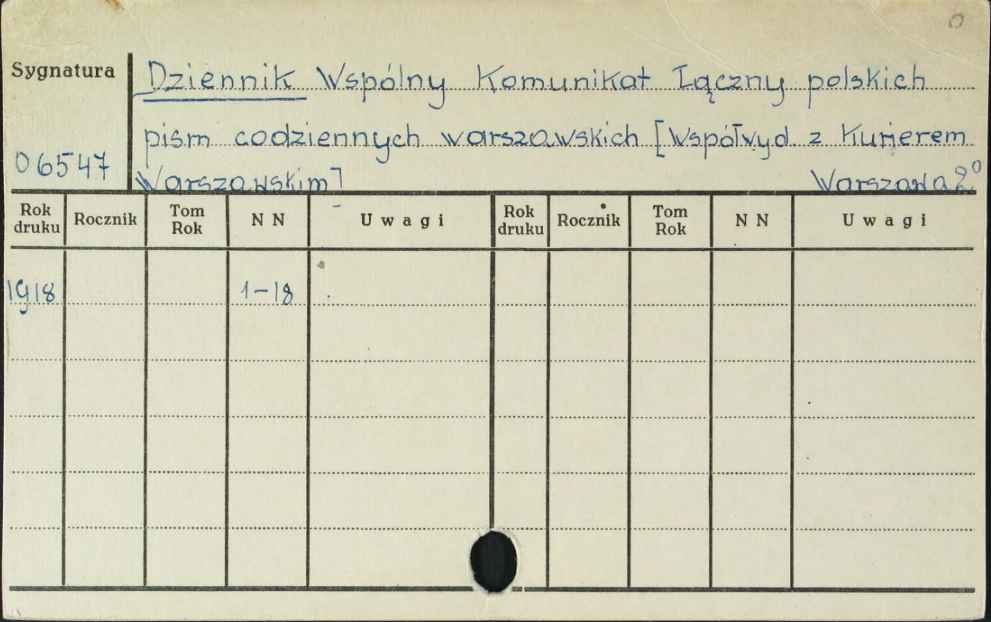 0
Sygnatura
Dziennik Wspólny Komunikat Łączny polskich
pism codziennych warszawskich [Współwyd. z Kurjerem
06547
Warszawskim] Warszawa 2°
Rok druku Rocznik Tom Rok N N Uwagi Rok druku Rocznik Tom Rok N N Uwagi
1918 1-18